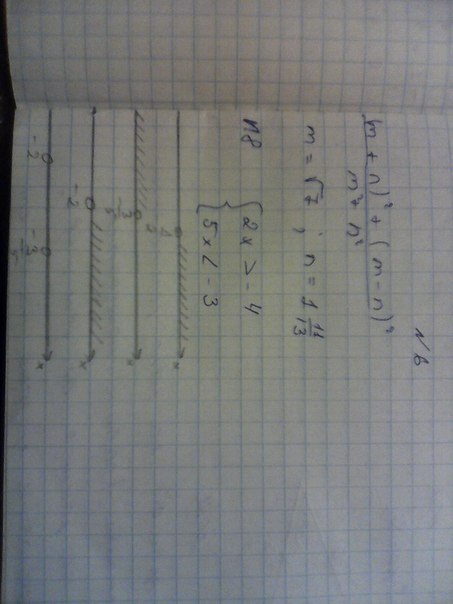 N 6
(m + n)² + (m - n)²
m² + n²
m = √7 ; n = 1 11/13
N8
{ 2x > -4
5x < -3
x
-3/5 x
-2 x
-2 -3/5 x